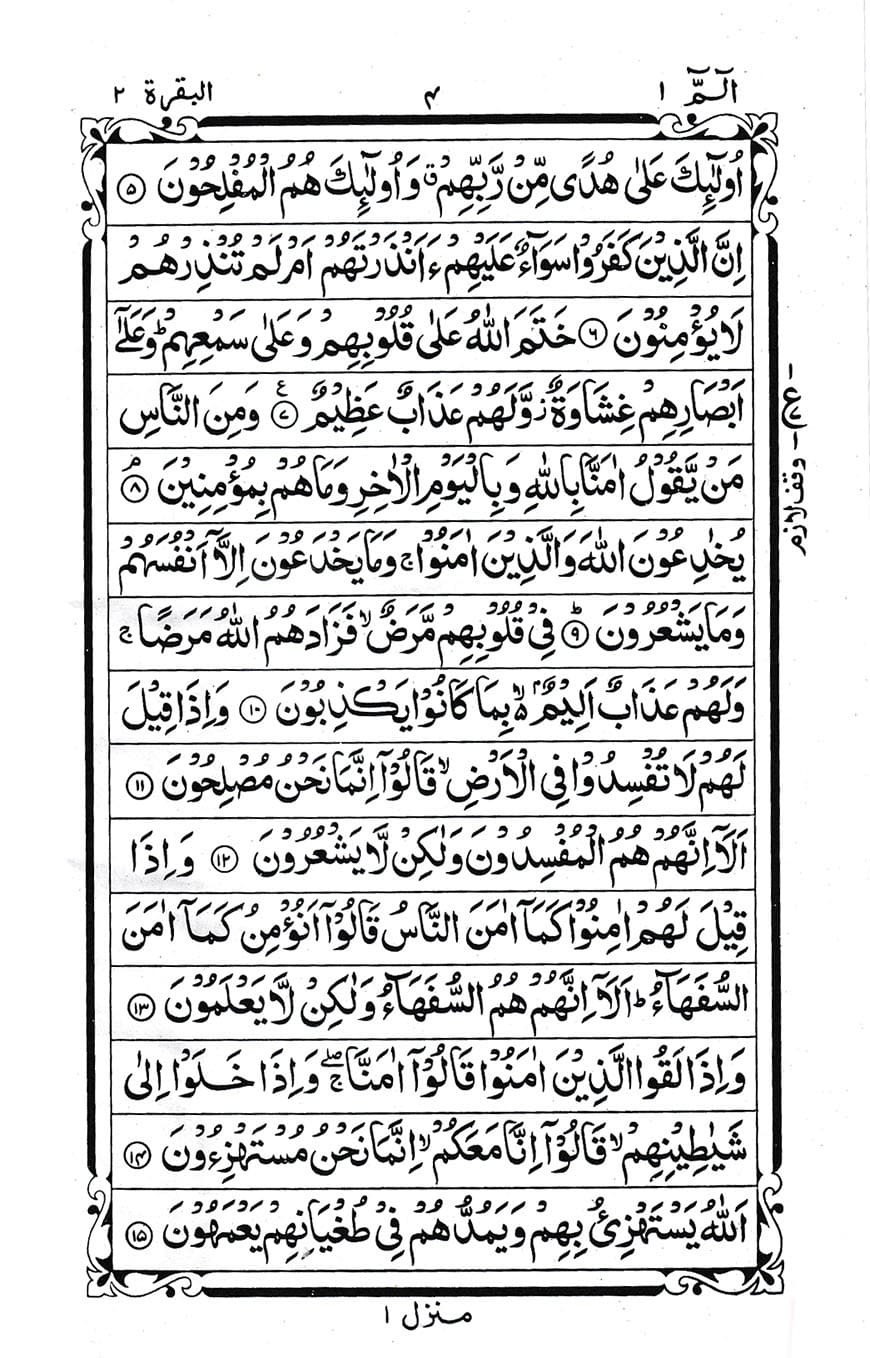 الٓمّٓ ١
۴
البقرة ٢
اُولٰٓئِكَ عَلٰى هُدًى مِّنْ رَّبِّهِمْ ۗ وَاُولٰٓئِكَ هُمُ الْمُفْلِحُوْنَ ۵
اِنَّ الَّذِيْنَ كَفَرُوْا سَوَآءٌ عَلَيْهِمْ ءَاَنْذَرْتَهُمْ اَمْ لَمْ تُنْذِرْهُمْ
لَا يُؤْمِنُوْنَ ۶ خَتَمَ اللّٰهُ عَلٰى قُلُوْبِهِمْ وَعَلٰى سَمْعِهِمْ ؕ وَعَلٰٓى
اَبْصَارِهِمْ غِشَاوَةٌ ز وَّلَهُمْ عَذَابٌ عَظِيْمٌ ۷ ع وَمِنَ النَّاسِ
مَنْ يَّقُوْلُ اٰمَنَّا بِاللّٰهِ وَبِالْيَوْمِ الْاٰخِرِ وَمَا هُمْ بِمُؤْمِنِيْنَ ۘ ۸
يُخٰدِعُوْنَ اللّٰهَ وَالَّذِيْنَ اٰمَنُوْا ۚ وَمَا يَخْدَعُوْنَ اِلَّآ اَنْفُسَهُمْ
وَمَا يَشْعُرُوْنَ ؕ ۹ فِيْ قُلُوْبِهِمْ مَّرَضٌ ۙ فَزَادَهُمُ اللّٰهُ مَرَضًا ۚ
وَلَهُمْ عَذَابٌ اَلِيْمٌ ۢ ۙ۬ بِمَا كَانُوْا يَكْذِبُوْنَ ۱۰ وَاِذَا قِيْلَ
لَهُمْ لَا تُفْسِدُوْا فِى الْاَرْضِ ۙ قَالُوْٓا اِنَّمَا نَحْنُ مُصْلِحُوْنَ ۱۱
اَلَآ اِنَّهُمْ هُمُ الْمُفْسِدُوْنَ وَلٰكِنْ لَّا يَشْعُرُوْنَ ۱۲ وَاِذَا
قِيْلَ لَهُمْ اٰمِنُوْا كَمَآ اٰمَنَ النَّاسُ قَالُوْٓا اَنُؤْمِنُ كَمَآ اٰمَنَ
السُّفَهَآءُ ؕ اَلَآ اِنَّهُمْ هُمُ السُّفَهَآءُ وَلٰكِنْ لَّا يَعْلَمُوْنَ ۱۳
وَاِذَا لَقُوا الَّذِيْنَ اٰمَنُوْا قَالُوْٓا اٰمَنَّا ۖۚ وَاِذَا خَلَوْا اِلٰى
شَيٰطِيْنِهِمْ ۙ قَالُوْٓا اِنَّا مَعَكُمْ ۙ اِنَّمَا نَحْنُ مُسْتَهْزِءُوْنَ ۱۴
اَللّٰهُ يَسْتَهْزِئُ بِهِمْ وَيَمُدُّهُمْ فِيْ طُغْيَانِهِمْ يَعْمَهُوْنَ ۱۵
ع
وقف لازم
منزل ١